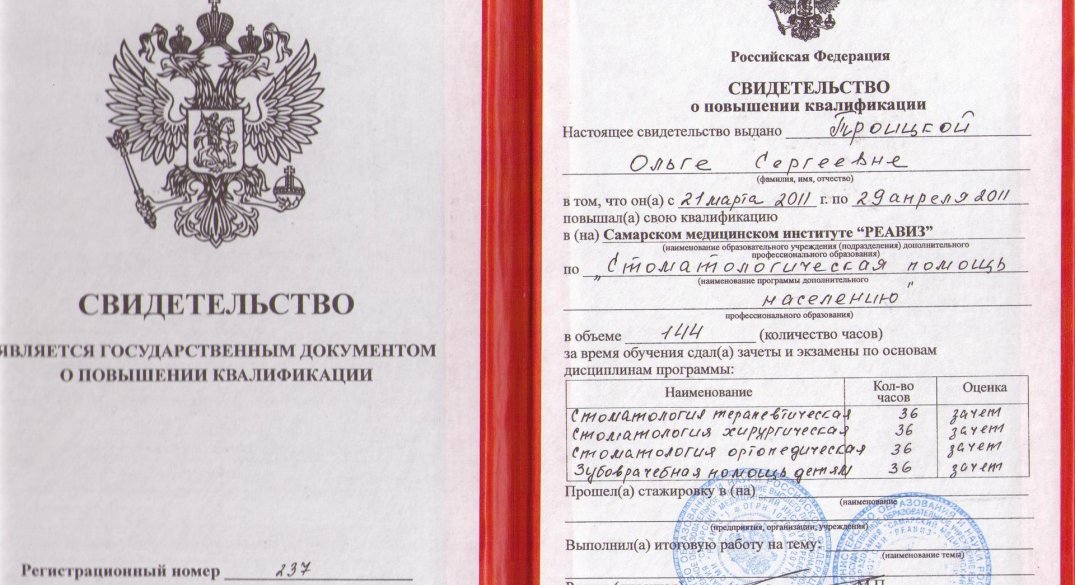 СВИДЕТЕЛЬСТВО
ЯВЛЯЕТСЯ ГОСУДАРСТВЕННЫМ ДОКУМЕНТОМ
О ПОВЫШЕНИИ КВАЛИФИКАЦИИ
Регистрационный номер 237
Российская Федерация
СВИДЕТЕЛЬСТВО
о повышении квалификации
Настоящее свидетельство выдано Троицкой
Ольге Сергеевне
(фамилия, имя, отчество)
в том, что он(а) с 21 марта 2011 г. по 29 апреля 2011
повышал(а) свою квалификацию
в (на) Самарском медицинском институте “РЕАВИЗ”
(наименование образовательного учреждения (подразделения) дополнительного
профессионального образования)
по „Стоматологическая помощь
(наименование программы дополнительного
населению"
профессионального образования)
в объеме 144 (количество часов)
за время обучения сдал(а) зачеты и экзамены по основам
дисциплинам программы:
Наименование Кол-во часов Оценка
Стоматология терапевтическая 36 зачет
Стоматология хирургическая 36 зачет
Стоматология ортопедическая 36 зачет
Зубоврачебная помощь детям 36 зачет
Прошел(а) стажировку в (на)
(наименование
предприятия, организации, учреждения)
Выполнил(а) итоговую работу на тему:
(наименование темы)
М.П.